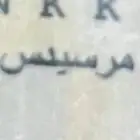 N K K
مرسيلس